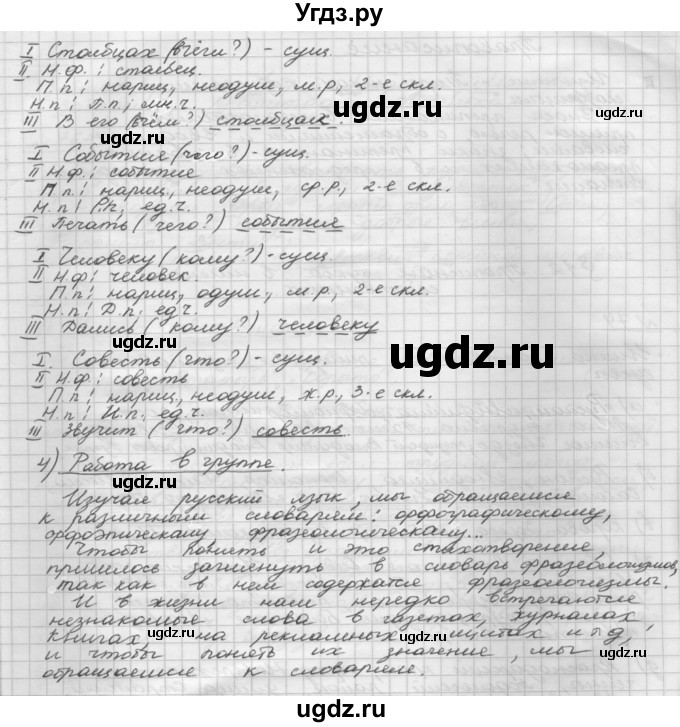 Угдз.ру
I Столбцах (в чём?) - сущ.
II Н.ф.: столбец.
П.п: нариц, неодуш, м.р, 2-е скл.
Н.п: П.п, мн.ч.
III В его (в чём?) столбцах.
I. События (чего?) - сущ.
II Н.ф: событие
П.п: нариц, неодуш, ср.р, 2-е скл.
Н.п: Р.п, ед.ч.
III Печать (чего?) события
I Человеку (кому?) - сущ.
II Н.ф: человек.
П.п: нариц, одуш, м.р, 2-е скл.
Н.п: Д.п, ед.ч.
III Дались (кому?) человеку
I. Совесть (что?) - сущ.
II Н.ф: совесть
П.п: нариц, неодуш, ж.р, 3-е скл.
Н.п: И.п, ед.ч.
III Звучит (что?) совесть
4) Работа в группе.
Изучая русский язык, мы обращаемся
к различным словарям: орфографическому,
орфоэпическому, фразеологическому...
Чтобы понять и это стихотворение,
пришлось заглянуть в словарь фразеологизмов,
так как в нем содержатся фразеологизмы.
И в жизни нам нередко встречаются
незнакомые слова в газетах, журналах,
книгах, на рекламных щитах и т д,
и чтобы понять их значение, мы
обращаемся к словарям.